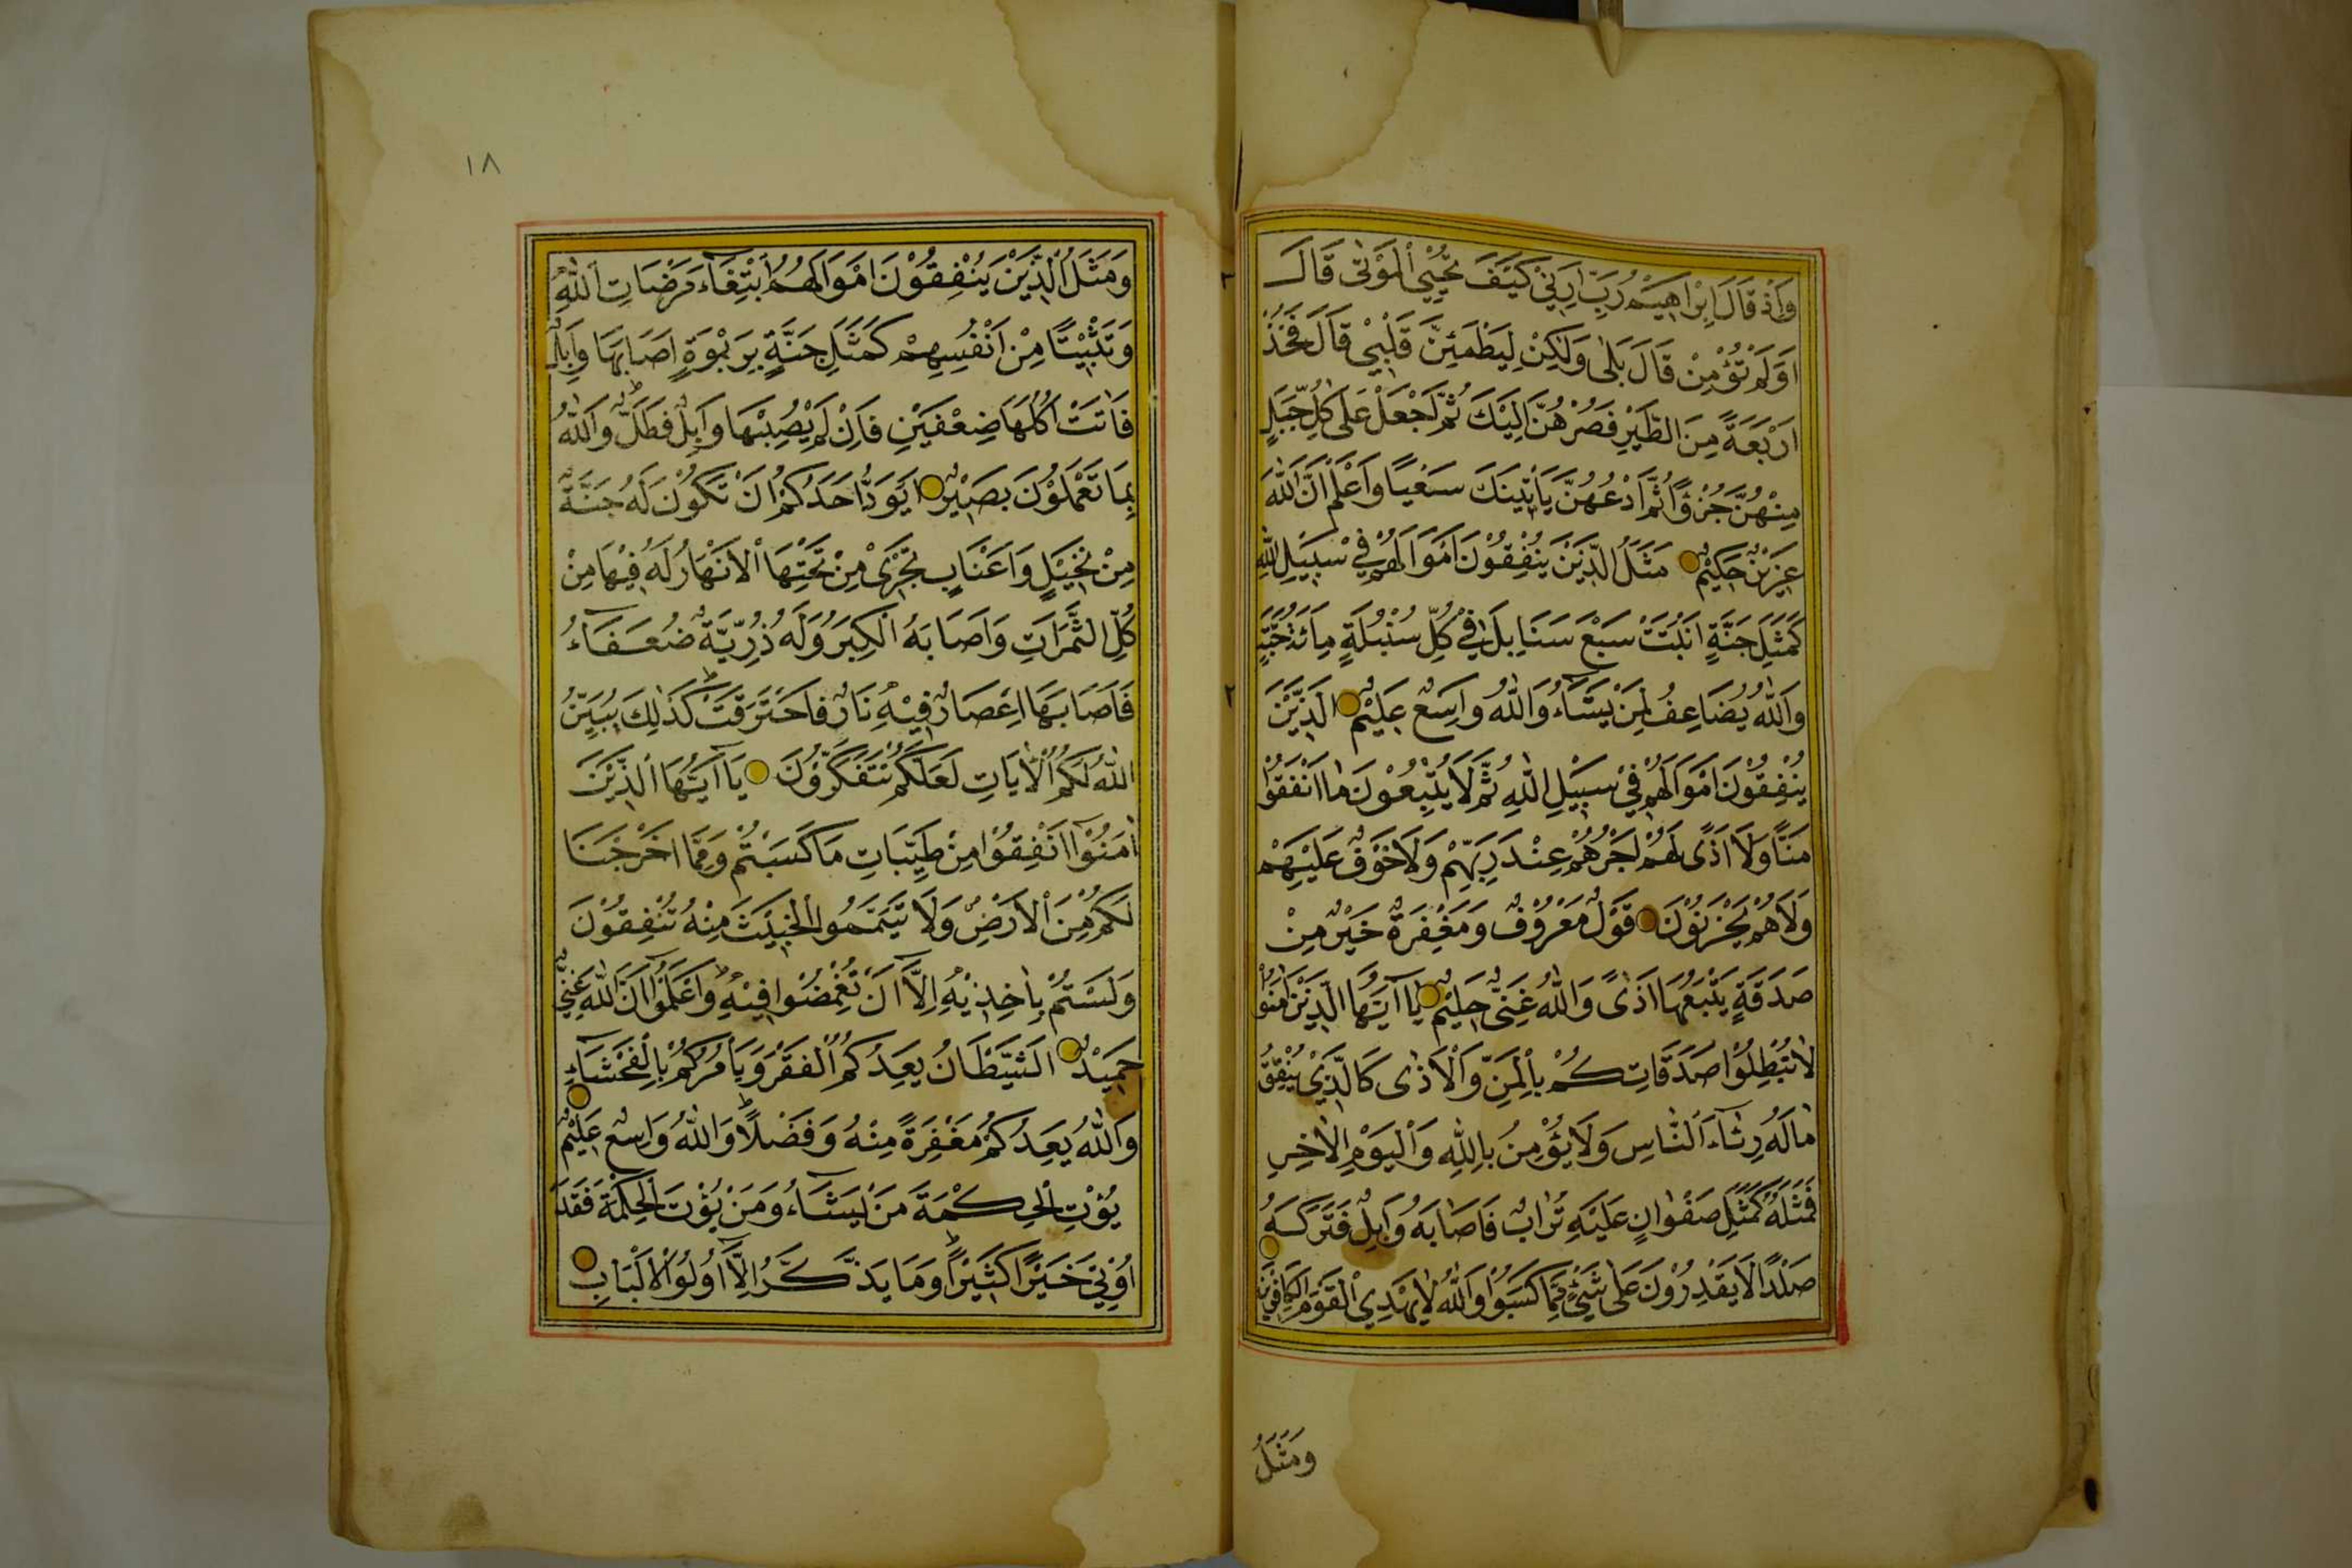 وَاِذْ قَالَ اِبْرٰاهِيمُ رَبِّ اَرِنِيْ كَيْفَ تُحْيِي الْمَوْتٰى قَالَ
اَوَلَمْ تُؤْمِنْ قَالَ بَلٰى وَلٰكِنْ لِيَطْمَئِنَّ قَلْبِيْ قَالَ فَخُذْ
اَرْبَعَةً مِنَ الطَّيْرِ فَصُرْهُنَّ اِلَيْكَ ثُمَّ اجْعَلْ عَلٰى كُلِّ جَبَلٍ
مِنْهُنَّ جُزْؤًا ثُمَّ ادْعُهُنَّ يَأْتِينَكَ سَعْيًا وَاعْلَمْ اَنَّ اللّٰهَ
عَزِيْزٌ حَكِيْمٌ مَثَلُ الَّذِيْنَ يُنْفِقُوْنَ اَمْوَالَهُمْ فِيْ سَبِيْلِ اللّٰهِ
كَمَثَلِ جَنَّةٍ اَنْبَتَتْ سَبْعَ سَنَابِلَ فِيْ كُلِّ سُنْبُلَةٍ مِائَةُ حَبَّةٍ
وَاللّٰهُ يُضَاعِفُ لِمَنْ يَشَاءُ وَاللّٰهُ وَاسِعٌ عَلِيْمٌ الَّذِيْنَ
يُنْفِقُوْنَ اَمْوَالَهُمْ فِيْ سَبِيْلِ اللّٰهِ ثُمَّ لَا يُتْبِعُوْنَ مَا اَنْفَقُوْا
مَنًّا وَلَا اَذًى لَهُمْ اَجْرُهُمْ عِنْدَ رَبِّهِمْ وَلَا خَوْفٌ عَلَيْهِمْ
وَلَا هُمْ يَحْزَنُوْنَ قَوْلٌ مَعْرُوْفٌ وَمَغْفِرَةٌ خَيْرٌ مِنْ
صَدَقَةٍ يَتْبَعُهَا اَذًى وَاللّٰهُ غَنِيٌّ حَلِيْمٌ يَا اَيُّهَا الَّذِيْنَ اٰمَنُوْا
لَا تُبْطِلُوْا صَدَقَاتِكُمْ بِالْمَنِّ وَالْاَذٰى كَالَّذِيْ يُنْفِقُ
مَالَهُ رِئَاءَ النَّاسِ وَلَا يُؤْمِنُ بِاللّٰهِ وَالْيَوْمِ الْاٰخِرِ
فَمَثَلُهُ كَمَثَلِ صَفْوَانٍ عَلَيْهِ تُرَابٌ فَاَصَابَهُ وَابِلٌ فَتَرَكَهُ
صَلْدًا لَا يَقْدِرُوْنَ عَلٰى شَيْءٍ مِمَّا كَسَبُوْا وَاللّٰهُ لَا يَهْدِي الْقَوْمَ الْكَافِرِيْنَ
وَمَثَلُ
١٨
وَمَثَلُ الَّذِيْنَ يُنْفِقُوْنَ اَمْوَالَهُمُ ابْتِغَاءَ مَرْضَاتِ اللّٰهِ
وَتَثْبِيْتًا مِنْ اَنْفُسِهِمْ كَمَثَلِ جَنَّةٍ بِرَبْوَةٍ اَصَابَهَا وَابِلٌ
فَاٰتَتْ اُكُلَهَا ضِعْفَيْنِ فَاِنْ لَمْ يُصِبْهَا وَابِلٌ فَطَلٌّ وَاللّٰهُ
بِمَا تَعْمَلُوْنَ بَصِيْرٌ اَيَوَدُّ اَحَدُكُمْ اَنْ تَكُوْنَ لَهُ جَنَّةٌ
مِنْ نَخِيْلٍ وَاَعْنَابٍ تَجْرِيْ مِنْ تَحْتِهَا الْاَنْهَارُ لَهُ فِيْهَا مِنْ
كُلِّ الثَّمَرَاتِ وَاَصَابَهُ الْكِبَرُ وَلَهُ ذُرِّيَّةٌ ضُعَفَاءُ
فَاَصَابَهَا اِعْصَارٌ فِيْهِ نَارٌ فَاحْتَرَقَتْ كَذٰلِكَ يُبَيِّنُ
اللّٰهُ لَكُمُ الْاٰيَاتِ لَعَلَّكُمْ تَتَفَكَّرُوْنَ يَا اَيُّهَا الَّذِيْنَ
اٰمَنُوْا اَنْفِقُوْا مِنْ طَيِّبَاتِ مَا كَسَبْتُمْ وَمِمَّا اَخْرَجْنَا
لَكُمْ مِنَ الْاَرْضِ وَلَا تَيَمَّمُوا الْخَبِيْثَ مِنْهُ تُنْفِقُوْنَ
وَلَسْتُمْ بِاٰخِذِيْهِ اِلَّا اَنْ تُغْمِضُوْا فِيْهِ وَاعْلَمُوْا اَنَّ اللّٰهَ غَنِيٌّ
حَمِيْدٌ الشَّيْطَانُ يَعِدُكُمُ الْفَقْرَ وَيَأْمُرُكُمْ بِالْفَحْشَاءِ
وَاللّٰهُ يَعِدُكُمْ مَغْفِرَةً مِنْهُ وَفَضْلًا وَاللّٰهُ وَاسِعٌ عَلِيْمٌ
يُؤْتِي الْحِكْمَةَ مَنْ يَشَاءُ وَمَنْ يُؤْتَ الْحِكْمَةَ فَقَدْ
اُوْتِيَ خَيْرًا كَثِيْرًا وَمَا يَذَّكَّرُ اِلَّا اُولُوا الْاَلْبَابِ